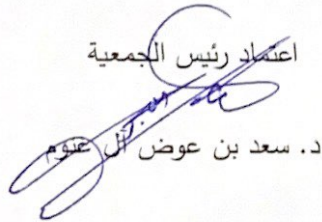 اعتماد رئيس الجمعية
د. سعد بن عوض آل عتوم